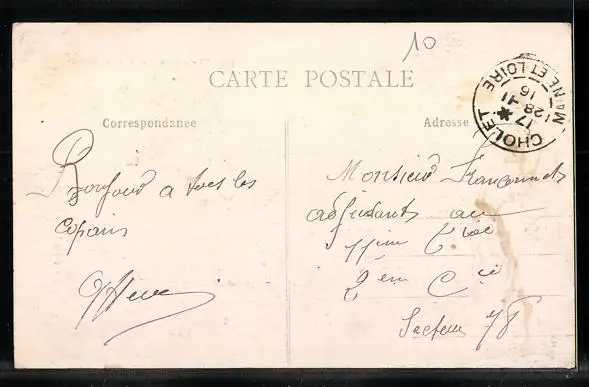 10
CARTE POSTALE
CHOLET
MAINE ET LOIRE
17 * 28-11 16
Correspondance
Bonjour a tous les
copains
Adresse
Monsieur
adjudant au
2 em Cie
Secteur 78